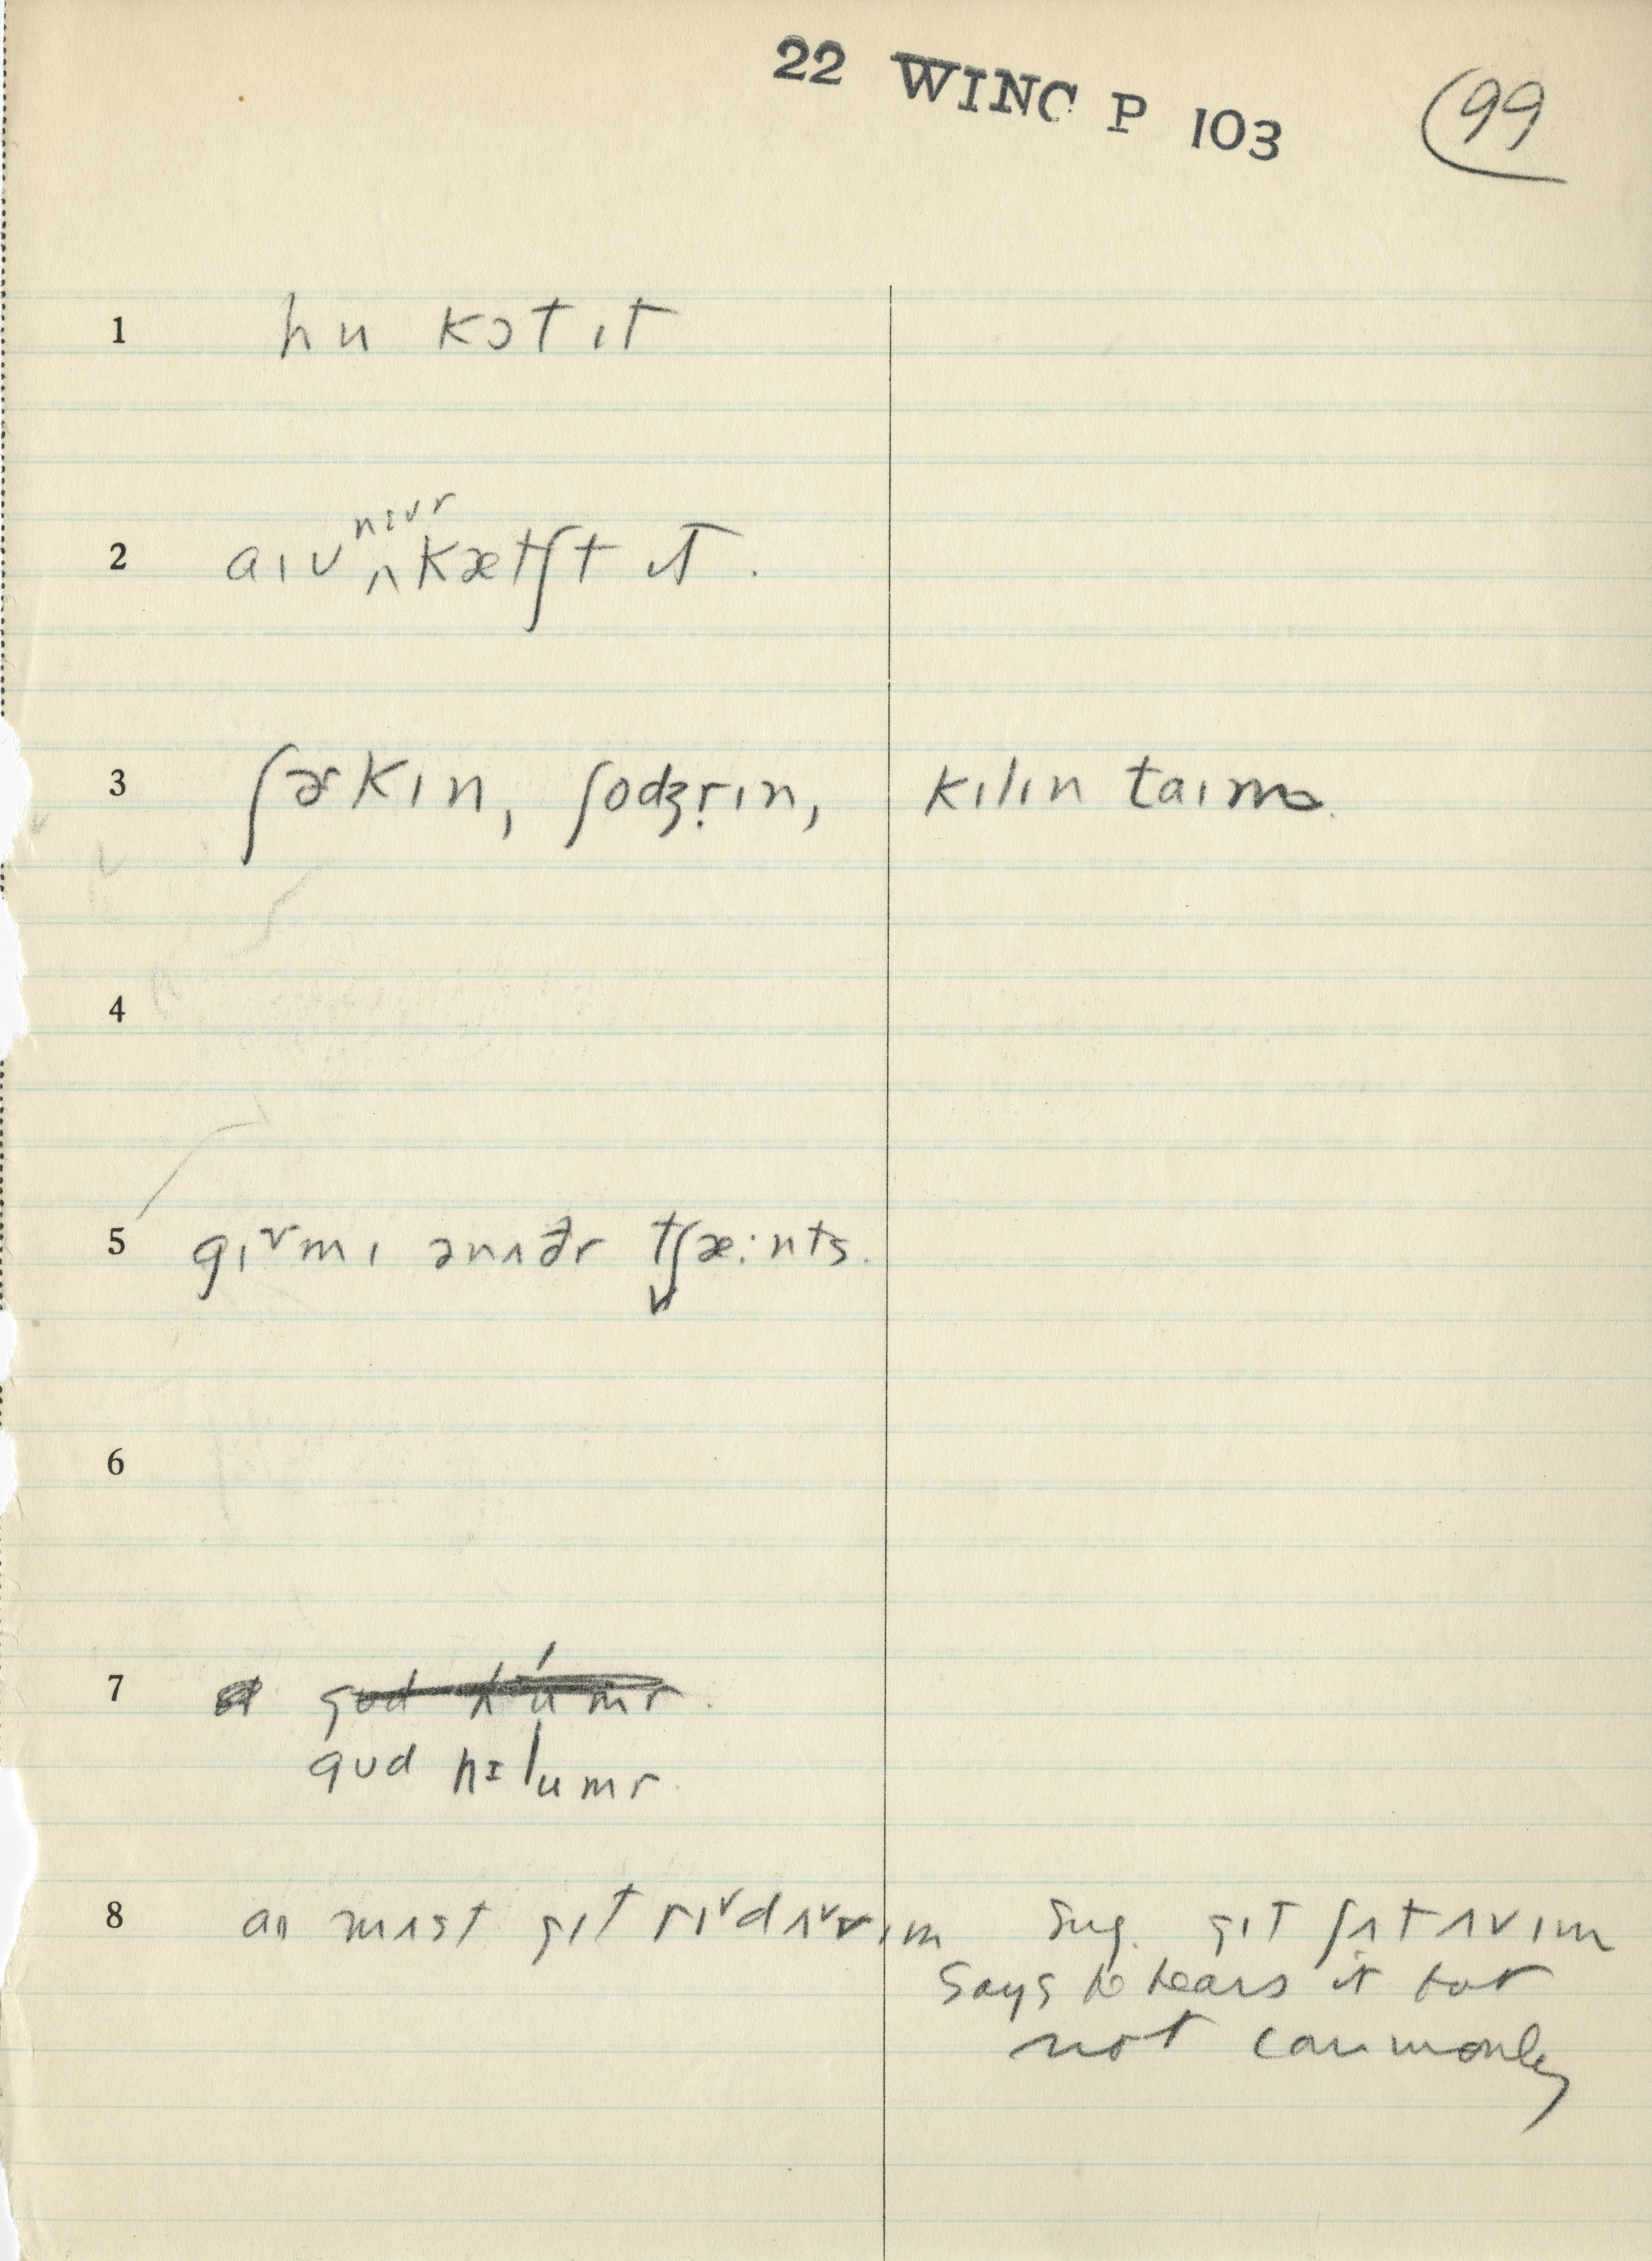 22 WINC P 103 99
1 hu kɔt ɪt
nɛvr
2 aɪv ʌ kætʃt ɪt .
3 ʃɚkɪn, ʃodʒrɪn, kɪlɪn taɪm
4
5 gɪvmɪ ənʌðr tʃæ:nts.
6
7 gud hɪumr.
gud hɪumr.
8 aɪ mʌst gɪt rɪdʌvɪm Sug. gɪt ʃʌt ʌvɪm
Says he hears it but
not commonly